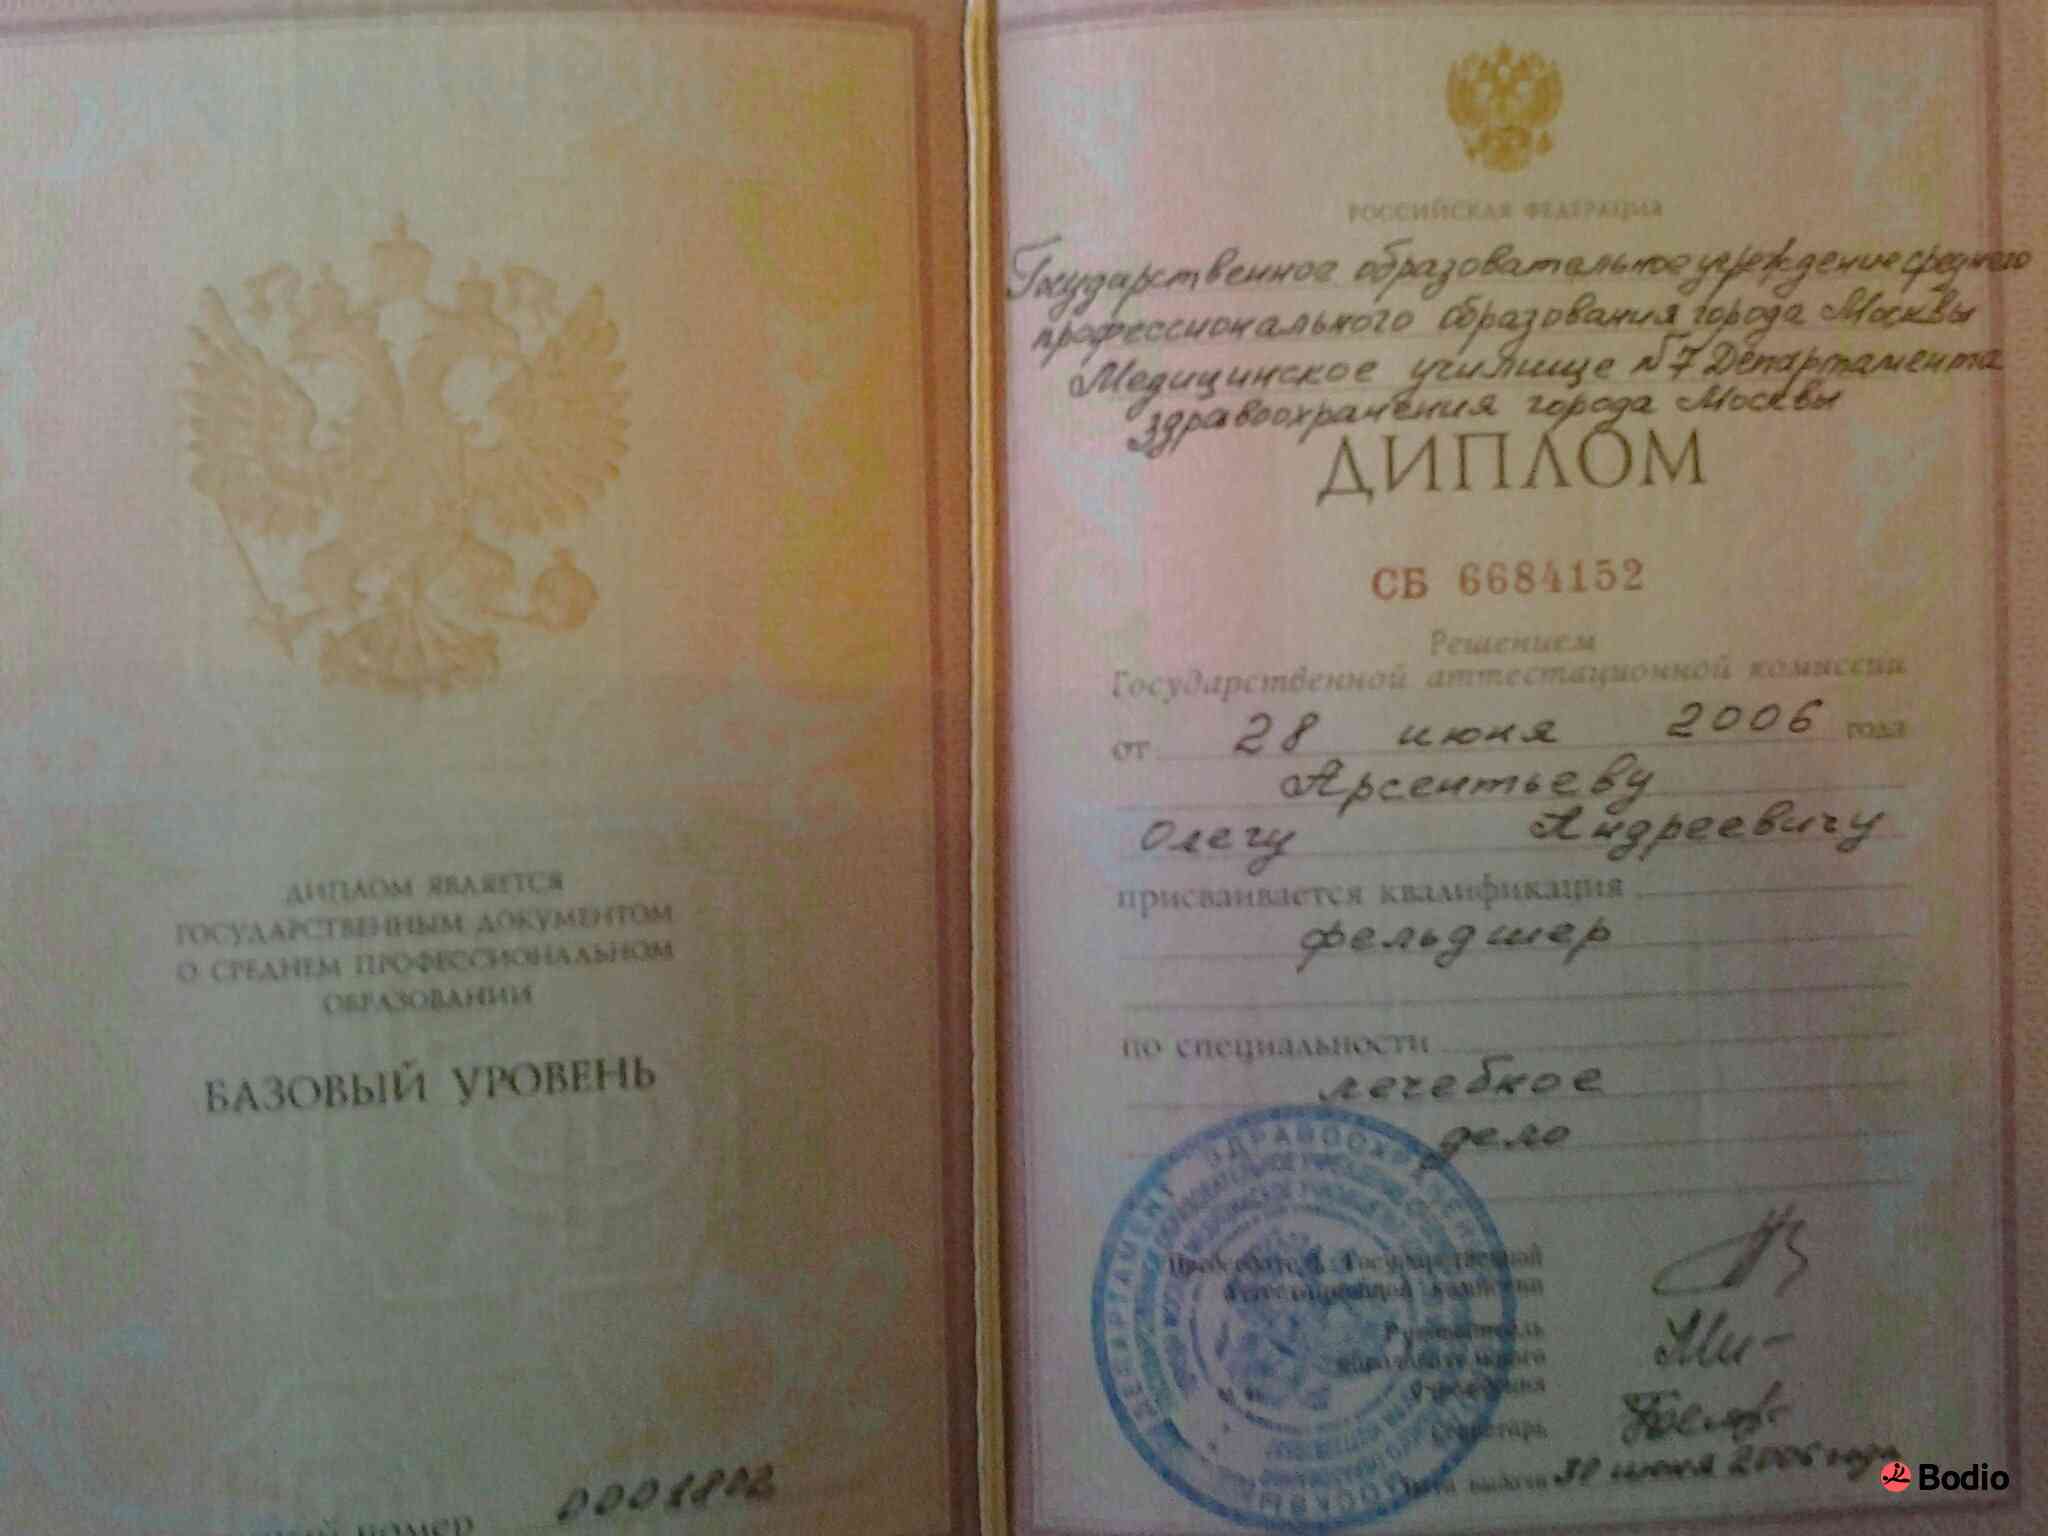 ДИПЛОМ ЯВЛЯЕТСЯ
ГОСУДАРСТВЕННЫМ ДОКУМЕНТОМ
О СРЕДНЕМ ПРОФЕССИОНАЛЬНОМ
ОБРАЗОВАНИИ
БАЗОВЫЙ УРОВЕНЬ
номер 0001802
РОССИЙСКАЯ ФЕДЕРАЦИЯ
Государственное образовательное учреждение среднего
профессионального образования города Москвы
Медицинское училище №7 Департамента
здравоохранения города Москвы
ДИПЛОМ
СБ 6684152
Решением
Государственной аттестационной комиссии
от 28 июня 2006 года
Арсентьеву
Олегу Андреевичу
присваивается квалификация
фельдшер
по специальности
лечебное
дело
ДЕПАРТАМЕНТ ЗДРАВООХРАНЕНИЯ
Председатель Государственной
аттестационной комиссии
Руководитель
образовательного
учреждения
Секретарь
Дата выдачи 30 июня 2006 года
Bodio